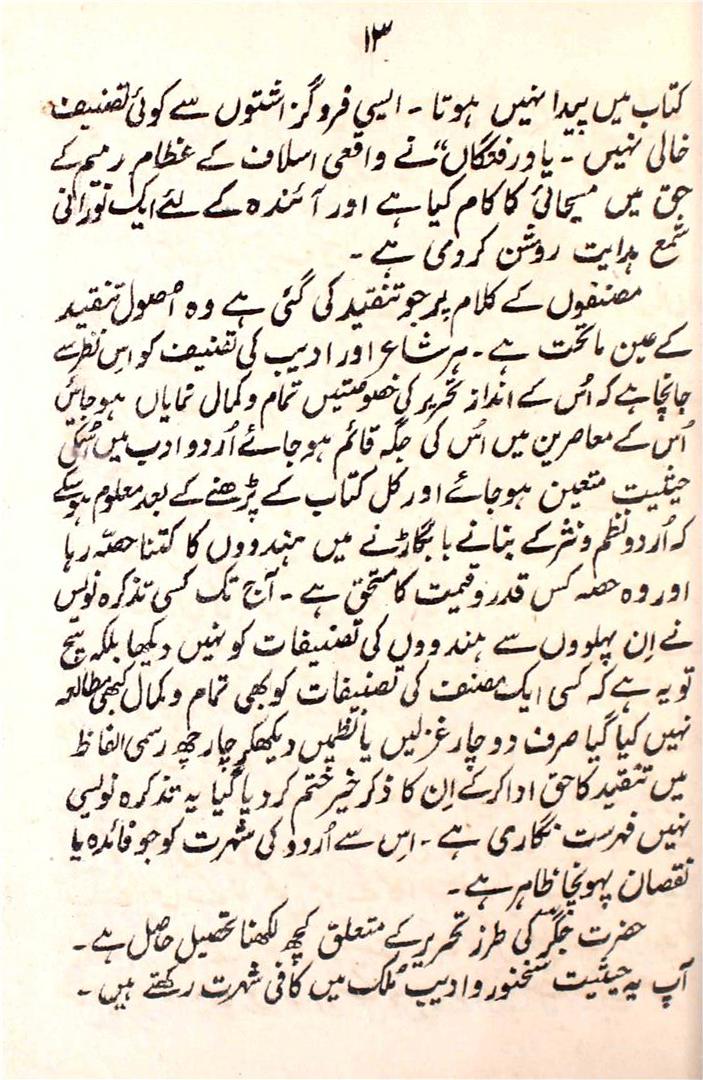 ۱۳
کتاب میں پیدا نہیں ہوتا ۔ ایسی فروگزاشتوں سے کوئی تصنیف
خالی نہیں ۔ یاد رفتگاں“ نے واقعی اسلاف کے عظام رمیم کے
حق میں مسیحائی کا کام کیا ہے اور آئندہ کے لئے ایک نورانی
شمع ہدایت روشن کر دی ہے ۔
مصنفوں کے کلام پر جو تنقید کی گئی ہے وہ اصول تنقید
کے عین ماتحت ہے ۔ ہر شاعر اور ادیب کی تصنیف کو اس نظر سے
جانچا ہے کہ اُس کے انداز تحریر کی خصوصیتیں تمام و کمال نمایاں ہو جائیں
اُس کے معاصرین میں اُس کی جگہ قائم ہو جائے اُردو ادب میں اُسکی
حیثیت متعین ہو جائے اور کل کتاب کے پڑھنے کے بعد معلوم ہو سکے
کہ اُردو نظم و نثر کے بنانے یا بگاڑنے میں ہندووں کا کتنا حصّہ رہا
اور وہ حصہ کس قدر و قیمت کا مستحق ہے ۔ آج تک کسی تذکرہ نویس
نے اِن پہلووں سے ہندووں کی تصنیفات کو نہیں دیکھا بلکہ سچ
تو یہ ہے کہ کسی ایک مصنف کی تصنیفات کو بھی تمام و کمال کبھی مطالعہ
نہیں کیا گیا صرف دو چار غزلیں یا نظمیں دیکھکر چار چھ رسمی الفاظ
میں تنقید کا حق ادا کر کے اِن کا ذکر خیر ختم کر دیا گیا یہ تذکرہ نویسی
نہیں فہرست نگاری ہے ۔ اِس سے اُردو کی شہرت کو جو فائدہ یا
نقصان پہونچا ظاہر ہے ۔
حضرت جگرؔ کی طرز تحریر کے متعلق کچھ لکھنا تحصیل حاصل ہے ۔
آپ بہ حیثیت سخنور و ادیب مُلک میں کافی شہرت رکھتے ہیں ۔